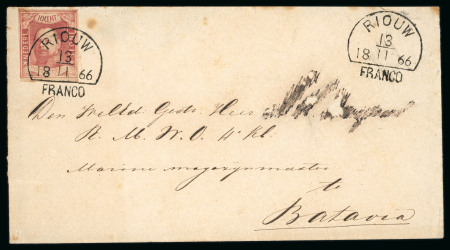 10 CENT
RIOUW
13
18 11 66
FRANCO
RIOUW
13
18 11 66
FRANCO
Den Weled. Gestr. Heer
R. M. W. O. 4e Kl.
Marine magazijnmeester
te
Batavia